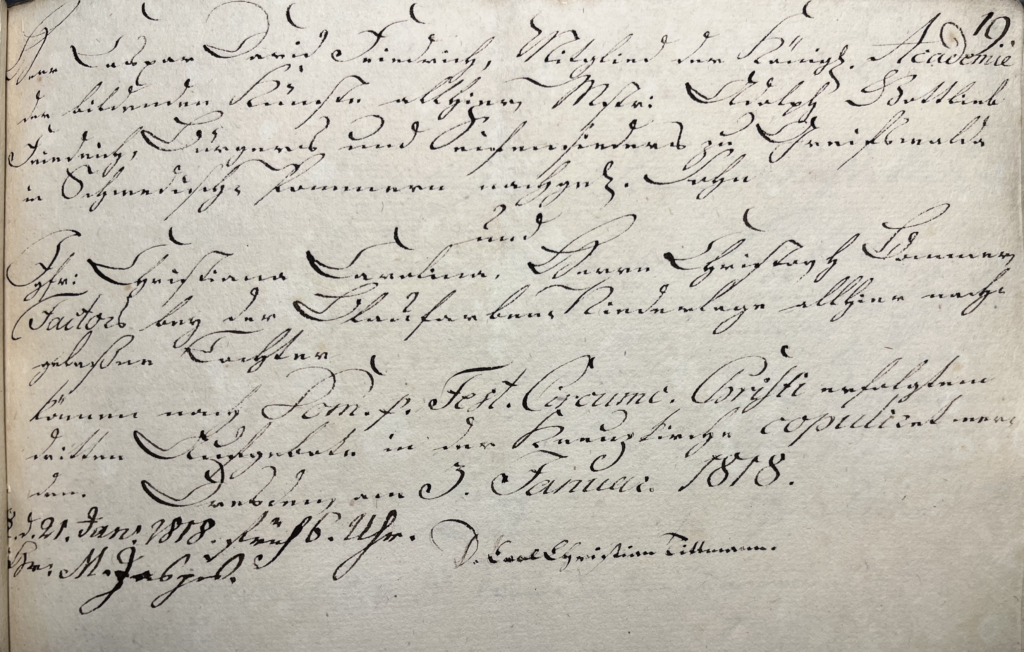 19
Herr Caspar David Friedrich, Mitglied der Königl. Academie
der bildenden Künste allhier, Mstr: Adolph Gottlieb
Friedrich, Bürgers und Seifensieders zu Greifswalda
in Schwedisch Pommern nachgel. Sohn
und
Jgfr: Christiana Carolina, Herrn Christoph Bommer,
Factors bey der Blaufarben Niederlage allhier nach-
gelaßne Tochter
können nach Dom. p. Fest. Circumc. Christi erfolgtem
dritten Aufgebote in der Kreuzkirche copuliret wer-
den. Dresden, am 3. Januar. 1818.
d. 21. Jan. 1818. früh 6. Uhr.
Hr: M. Jaspis.
D. Carl Christian Tittmann.